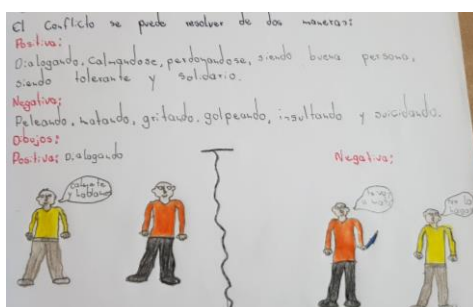 El Conflicto se puede resolver de dos maneras:
Positiva:
Dialogando, Calmandose, perdonandose, siendo buena persona,
siendo tolerante y solidario.
Negativa:
Peleando, matando, gritando, golpeando, insultando y suicidando.
Dibujos:
Positiva: Dialogando
Negativa:
y hablamos